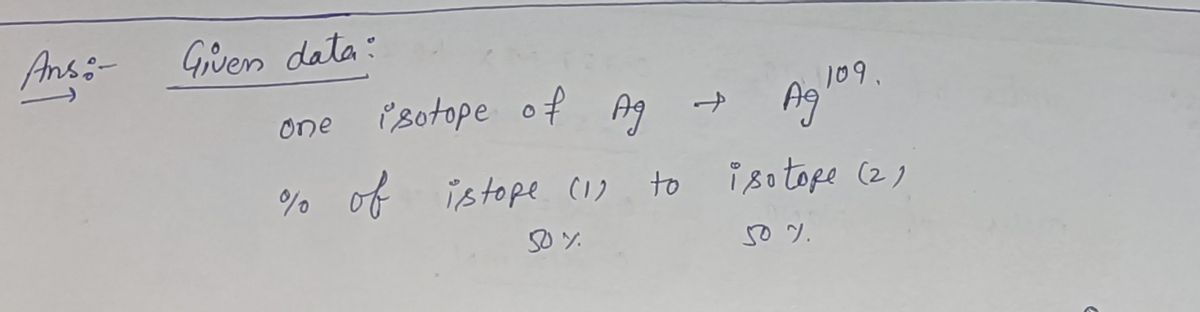 Ans:- Given data:
one isotope of Ag → Ag¹⁰⁹.
% of istope (1) to isotope (2)
50 %. 50 %.